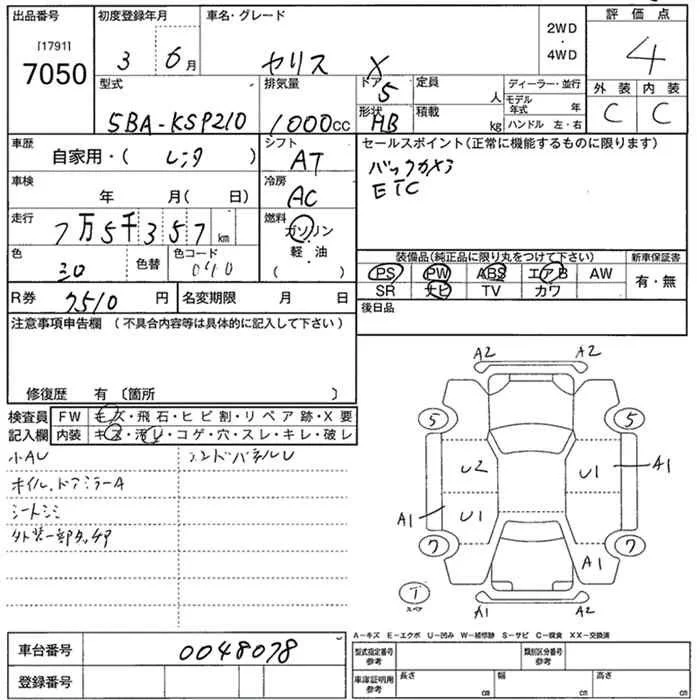 出品番号 初度登録年月 車名・グレード 2WD・4WD 評価点
[1791]
7050 3 6月 ヤリス X 4
型式 排気量 ドア 定員 ディーラー・並行 外装 内装
5BA-KSP210 1000cc 5 人 モデル年式 年 C C
形状 積載 ハンドル 左・右
HB kg
車歴 シフト セールスポイント(正常に機能するものに限ります)
自家用・( レンタ ) AT バックカメラ
車検 冷房 ETC
年 月(日) AC
走行 燃料
7万5千357km ガソリン
色 色替 色コード 軽・油
30 040 ( )
装備品(純正品に限り丸をつけて下さい) 新車保証書
PS PW ABS エアB AW 有・無
SR ナビ TV カワ
R券 7510円 名変期限 月 日
後日品
注意事項申告欄 (不具合内容等は具体的に記入して下さい)
修復歴 有 〔箇所 〕
検査員 FW キズ・飛石・ヒビ割・リペア跡・X要
記入欄 内装 キズ・汚レ・コゲ・穴・スレ・キレ・破レ
小AU エンドパネルU
ホイル、ドアミラーA
シートシミ
外装一部タッチP
A2 A2
5 5
U2 U1 A1
A1 U1
7 7
A1
T
スペア
A1 A2
A-キズ E-エクボ U-凹み W-補修跡 S-サビ C-腐食 XX-交換済
車台番号 0048078
型式指定番号 参考 類別区分番号 参考
登録番号
車庫証明用 参考 長さ cm 幅 cm 高さ cm